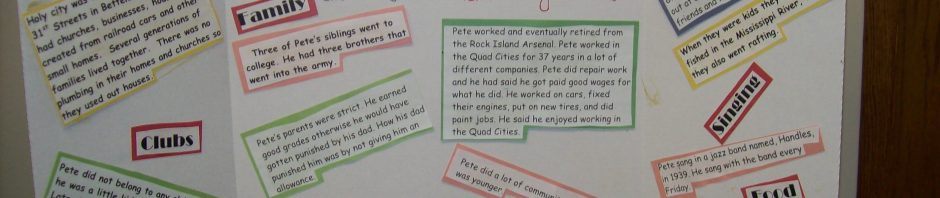 Holy city was
31st Streets in Bette
had churches, businesses, hou
created from railroad cars and other
small homes. Several generations of
families lived together. There was no
plumbing in their homes and churches so
they used out houses.
Clubs
Pete did not belong to any
he was a little
Family
Three of Pete's siblings went to
college. He had three brothers that
went into the army.
Pete's parents were strict. He earned
good grades otherwise he would have
gotten punished by his dad. How his dad
punished him was by not giving him an
allowance.
Pete worked and eventually retired from
the Rock Island Arsenal. Pete worked in
the Quad Cities for 37 years in a lot of
different companies. Pete did repair work
and he had said he got paid good wages for
what he did. He worked on cars, fixed
their engines, put on new tires, and did
paint jobs. He said he enjoyed working in
the Quad Cities.
Pete did a lot of commun
was younger
out of
friends and
When they were kids they
fished in the Mississippi River.
they also went rafting.
Singing
Pete sang in a jazz band named, Handles,
in 1939. He sang with the band every
Friday.
Food